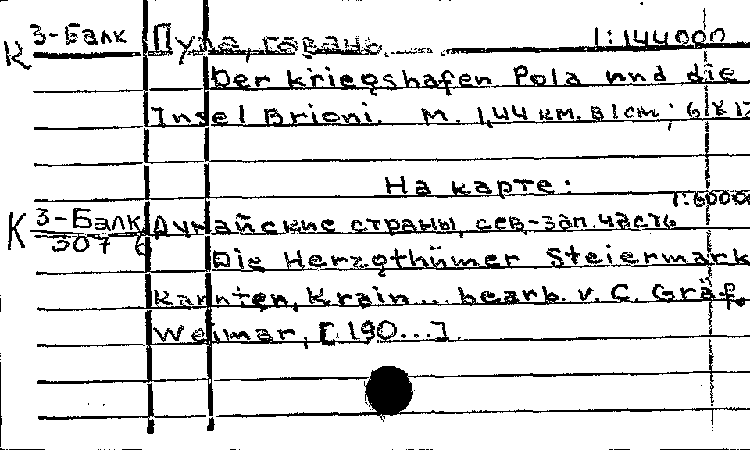 К 3-Балк Пула, гавань 1:144000
Der Kriegshafen Pola und die
Insel Brioni. М. 1,44 км. в 1 см; 6 х
На карте:
К 3-Балк/307 б Дунайские страны, сев-зап. часть
Die Herzogthümer Steiermark
Kärnten, Krain... bearb. v. C. Gräf.
Weimar, [190...]